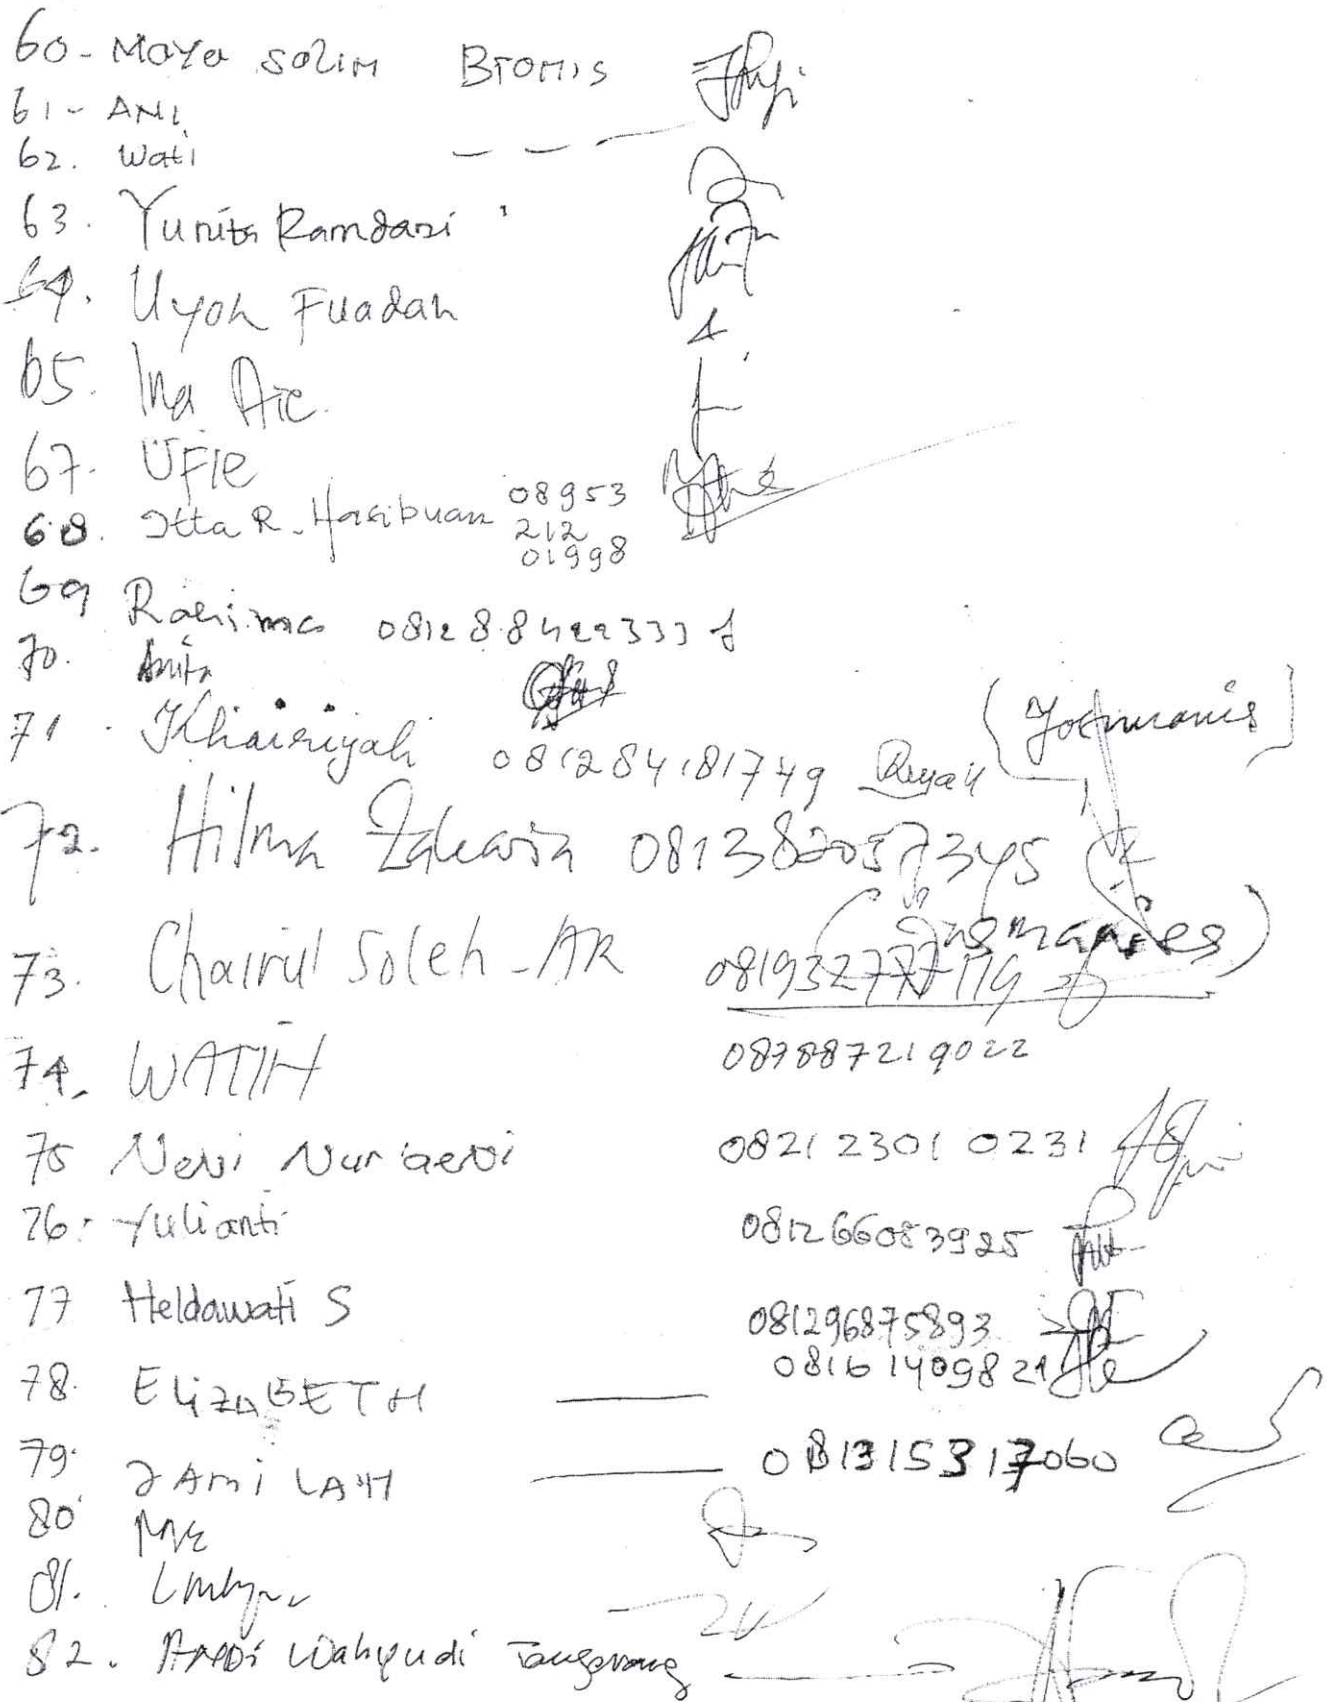 60- Maya Solim BTOMIS
61- ANI
62. Wati
63. Yunita Ramdani
64. Uyoh Fuadah
65. Ina
67. UFIE
68. Itta R. Hasibuan 08953
212
01998
69 Rohima
70. Anita
71. Khairiyah 081284181749
72. Hilma Zakaria 081382057345
73. Chairul Soleh - AR
74. WATIH 087887219022
75 Nevi Nurbaeti 082123010231
76. Yulianti 081266083925
77 Heldawati S 081296875893
78. ELIZABETH 081614098 21
79. JAMILAH 081315317060
80
81.
82. Andi Wahyudi Tangerang